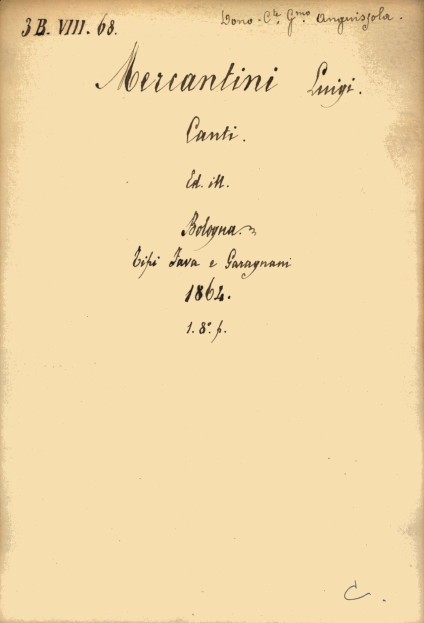 3 B. VIII. 68.
Dono C.te G.mo Anguissola.
Mercantini Luigi.
Canti.
Ed. ill.
Bologna.
Tipi Fava e Garagnani
1862.
1. 8.° p.
C.